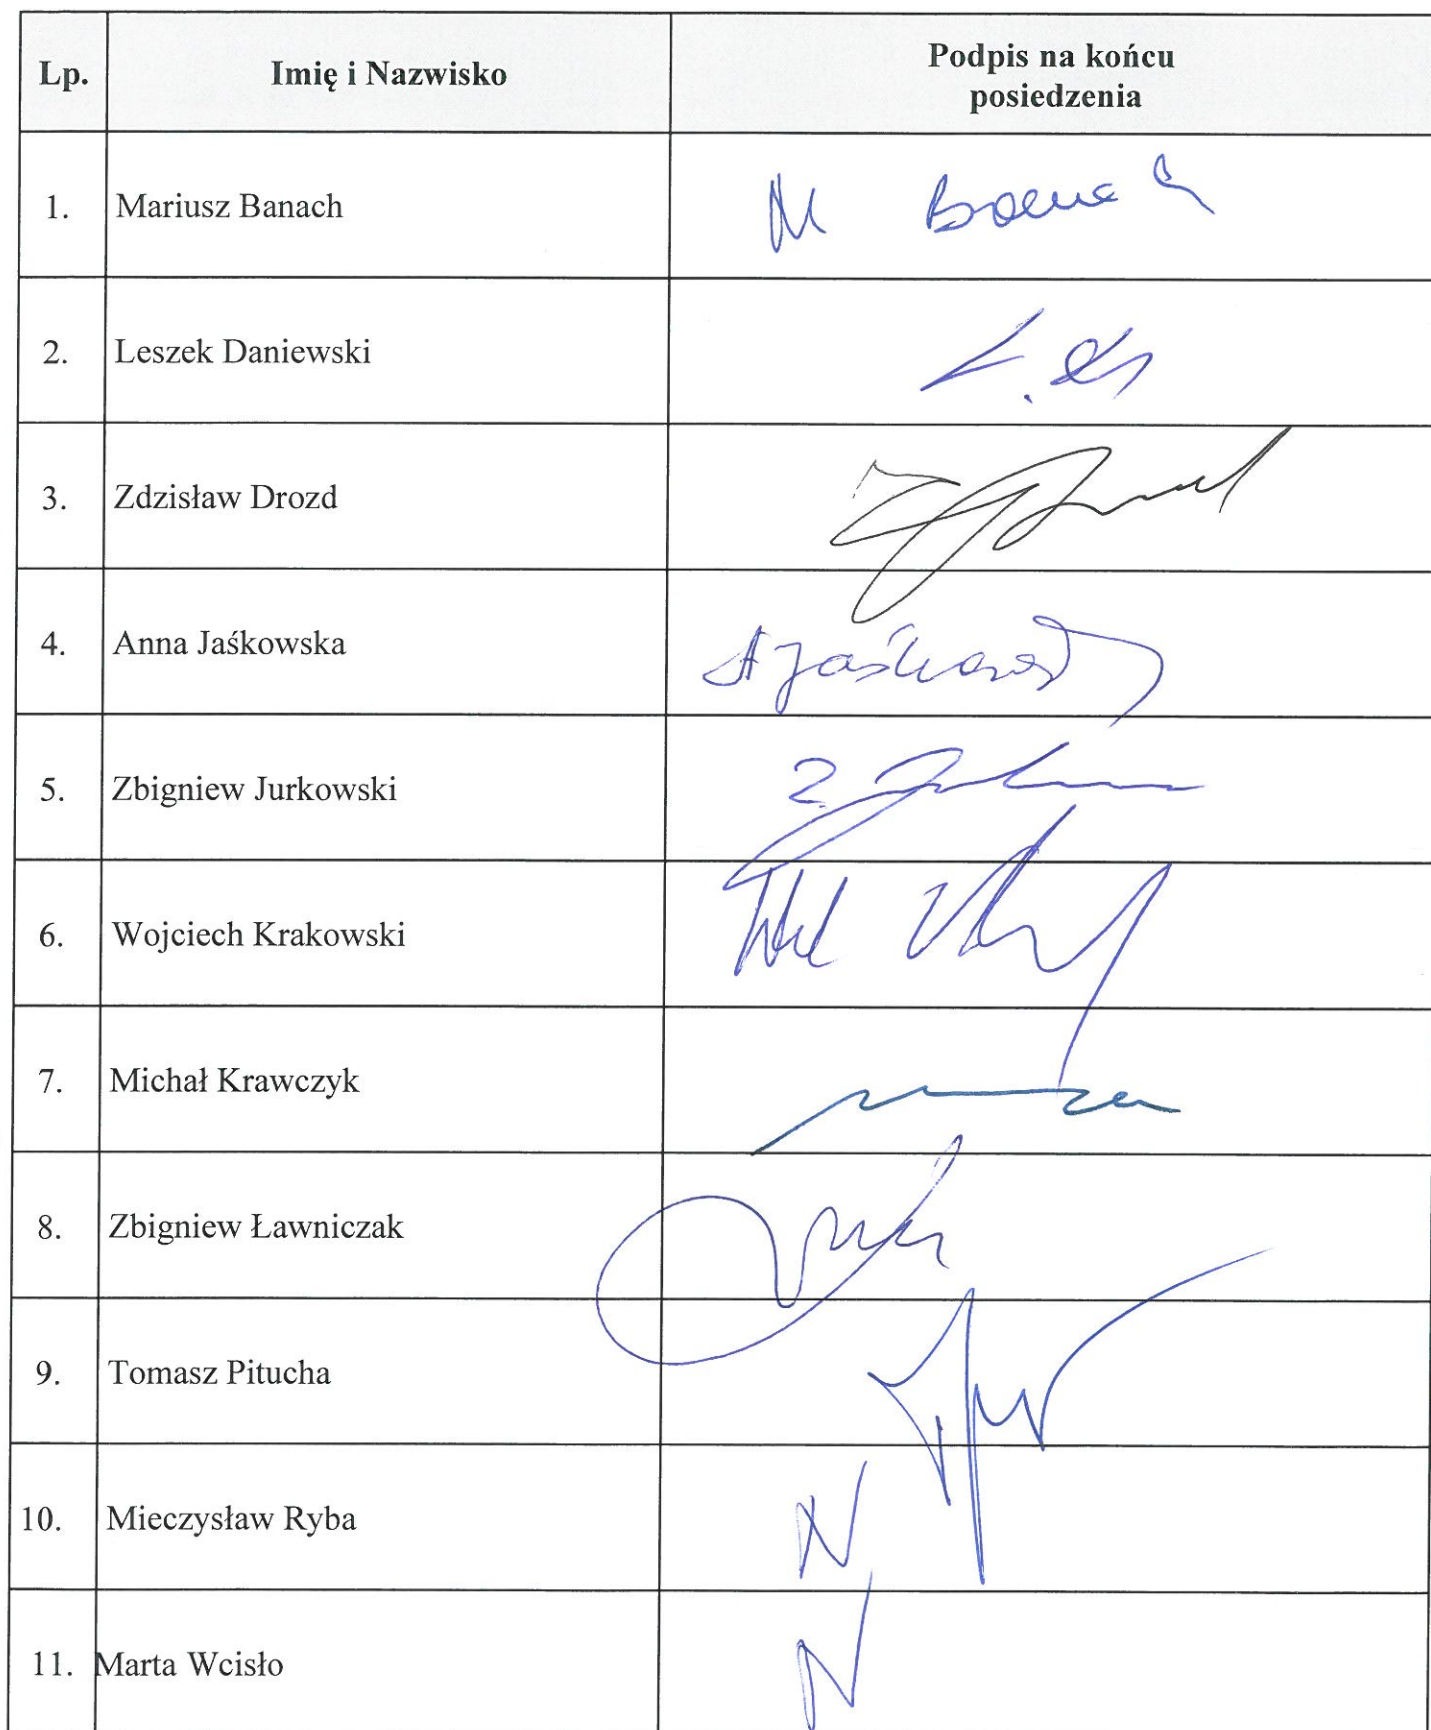 Lp. Imię i Nazwisko Podpis na końcu
posiedzenia
1. Mariusz Banach M Banach
2. Leszek Daniewski
3. Zdzisław Drozd
4. Anna Jaśkowska
5. Zbigniew Jurkowski
6. Wojciech Krakowski
7. Michał Krawczyk
8. Zbigniew Ławniczak
9. Tomasz Pitucha
10. Mieczysław Ryba N
11. Marta Wcisło N